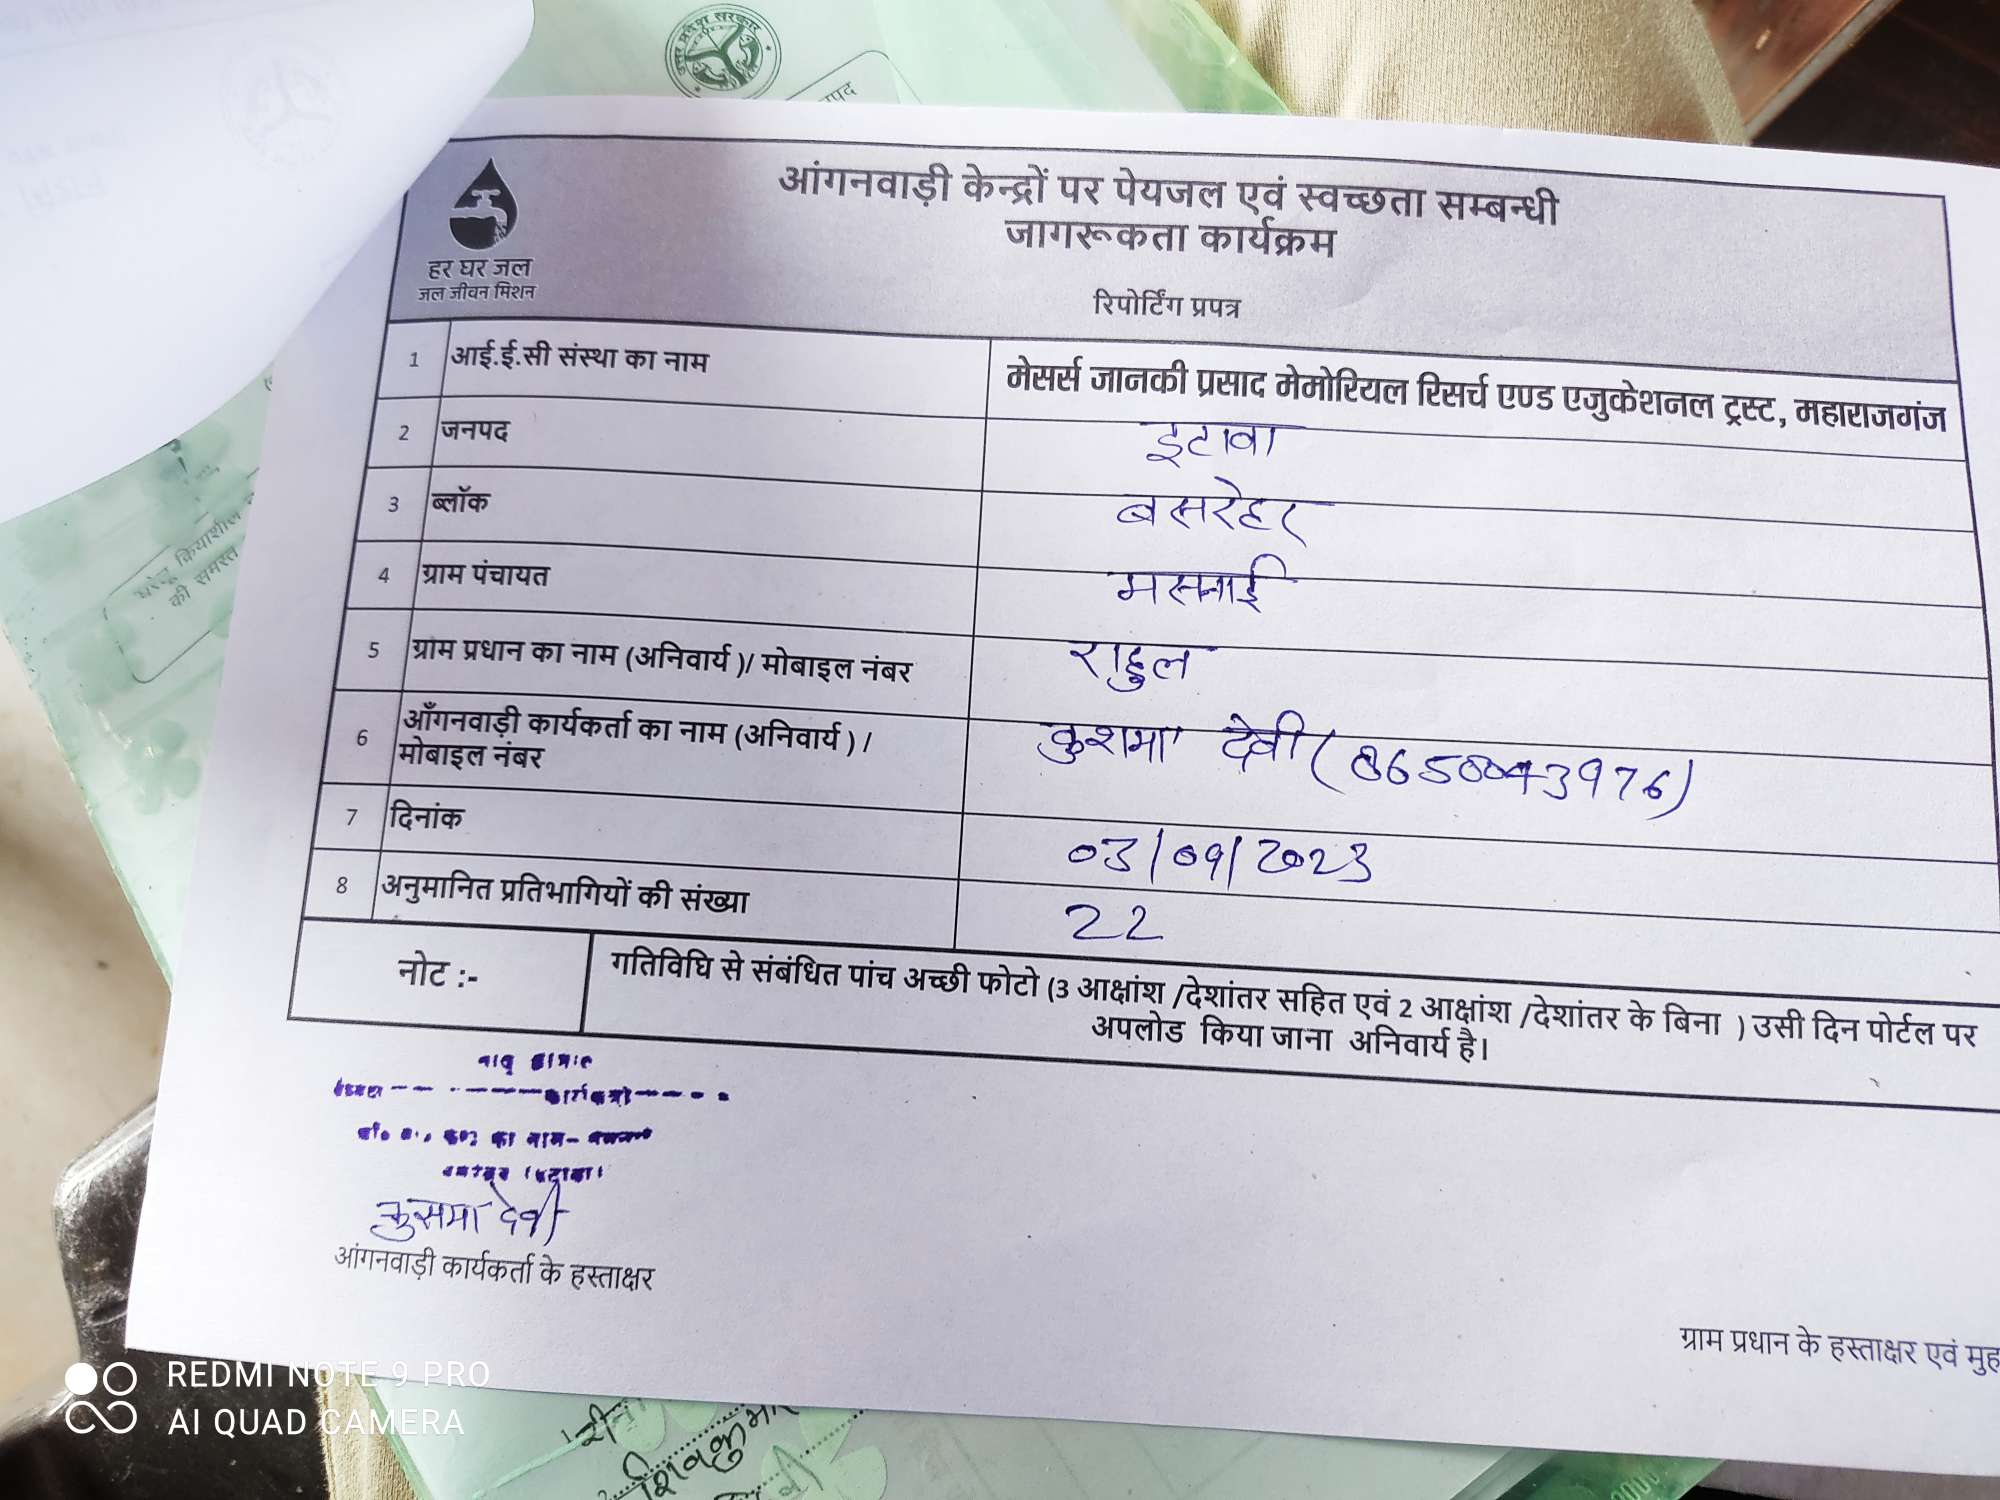 उत्तर प्रदेश सरकार
हर घर जल
जल जीवन मिशन
आंगनवाड़ी केन्द्रों पर पेयजल एवं स्वच्छता सम्बन्धी
जागरूकता कार्यक्रम
रिपोर्टिंग प्रपत्र
1 आई.ई.सी संस्था का नाम मेसर्स जानकी प्रसाद मेमोरियल रिसर्च एण्ड एजुकेशनल ट्रस्ट, महाराजगंज
2 जनपद इटावा
3 ब्लॉक बसरेहर
4 ग्राम पंचायत
5 ग्राम प्रधान का नाम (अनिवार्य )/ मोबाइल नंबर राहुल
6 आँगनवाड़ी कार्यकर्ता का नाम (अनिवार्य ) /
मोबाइल नंबर कुशमा देवी
7 दिनांक 03/09/2023
8 अनुमानित प्रतिभागियों की संख्या 22
नोट :- गतिविधि से संबंधित पांच अच्छी फोटो (3 आक्षांश /देशांतर सहित एवं 2 आक्षांश /देशांतर के बिना ) उसी दिन पोर्टल पर
अपलोड किया जाना अनिवार्य है।
कुसमा देवी
आंगनवाड़ी कार्यकर्ता के हस्ताक्षर
ग्राम प्रधान के हस्ताक्षर एवं मुह
घरेलू क्रियाशील
की समस्त
REDMI NOTE 9 PRO
AI QUAD CAMERA
शिवकुमार